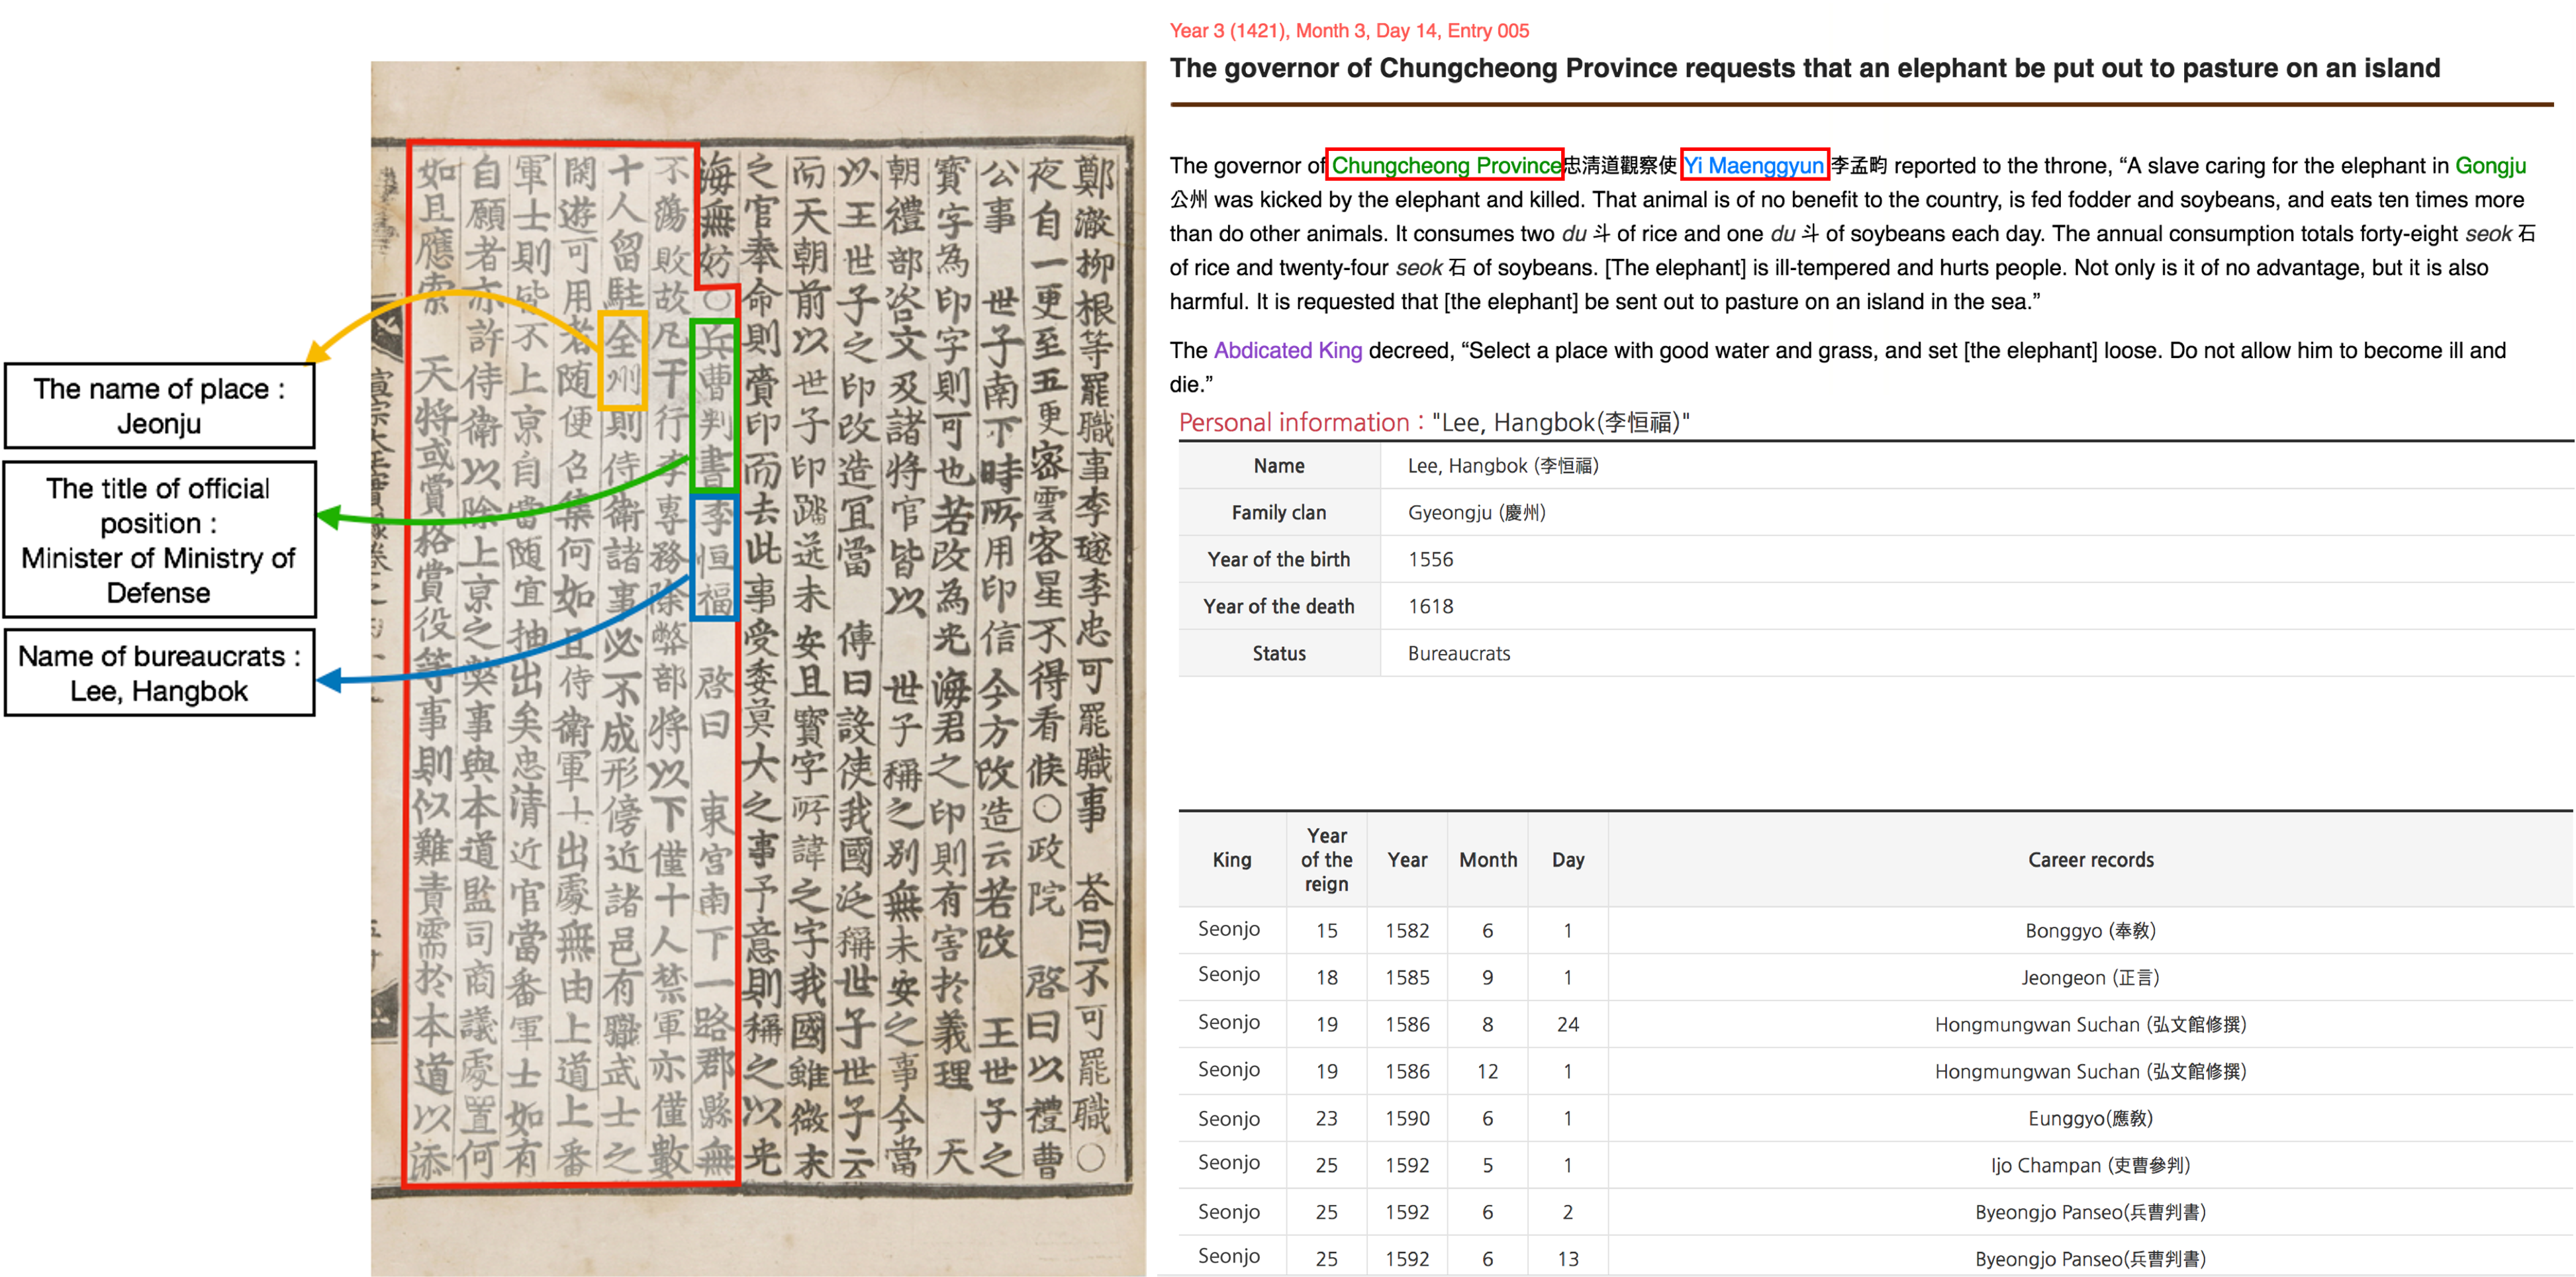 The name of place :
Jeonju
The title of official
position :
Minister of Ministry of
Defense
Name of bureaucrats :
Lee, Hangbok
鄭澈柳根等罷職事李璲李忠可罷職事 荅曰不可罷職○
夜自一更至五更密雲客星不得看候○政院 啓曰以禮曹
公事 世子南下時所用印信今方改造云若改 王世子之
寶字為印字則可也若改為光海君之印則有害於義理 天
朝禮部咨文及諸將官皆以 世子稱之別無未安之事今當
以王世子之印改造宜當 傳曰設使我國泛稱世子世子云
而天朝前以世子印踏送未安且寶字所諱之字我國雖微末
之官奉命則賫印而去此事受委莫大之事予意則稱之以光
海無妨○兵曹判書李恒福 啓曰 東宮南下一路郡縣無
不蕩敗故凡干行李專務除弊部將以下僅十人禁軍亦僅數
十人留駐全州則侍衛諸事必不成形傍近諸邑有職武士之
閑遊可用者隨便召集何如且侍衛軍士出處無由上道上番
軍士則皆不上京自當隨宜抽出矣忠清近官當番軍士如有
自願者亦許侍衛以除上京之弊事與本道監司商議處置何
如且應索 天將或賞格賞役等事則似難責需於本道以添
Year 3 (1421), Month 3, Day 14, Entry 005
The governor of Chungcheong Province requests that an elephant be put out to pasture on an island
The governor of Chungcheong Province忠清道觀察使 Yi Maenggyun 李孟畇 reported to the throne, “A slave caring for the elephant in Gongju
公州 was kicked by the elephant and killed. That animal is of no benefit to the country, is fed fodder and soybeans, and eats ten times more
than do other animals. It consumes two du 斗 of rice and one du 斗 of soybeans each day. The annual consumption totals forty-eight seok 石
of rice and twenty-four seok 石 of soybeans. [The elephant] is ill-tempered and hurts people. Not only is it of no advantage, but it is also
harmful. It is requested that [the elephant] be sent out to pasture on an island in the sea.”
The Abdicated King decreed, “Select a place with good water and grass, and set [the elephant] loose. Do not allow him to become ill and
die.”
Personal information : "Lee, Hangbok(李恒福)"
Name Lee, Hangbok (李恒福)
Family clan Gyeongju (慶州)
Year of the birth 1556
Year of the death 1618
Status Bureaucrats
King Year of the reign Year Month Day Career records
Seonjo 15 1582 6 1 Bonggyo (奉敎)
Seonjo 18 1585 9 1 Jeongeon (正言)
Seonjo 19 1586 8 24 Hongmungwan Suchan (弘文館修撰)
Seonjo 19 1586 12 1 Hongmungwan Suchan (弘文館修撰)
Seonjo 23 1590 6 1 Eunggyo(應敎)
Seonjo 25 1592 5 1 Ijo Champan (吏曹參判)
Seonjo 25 1592 6 2 Byeongjo Panseo(兵曹判書)
Seonjo 25 1592 6 13 Byeongjo Panseo(兵曹判書)